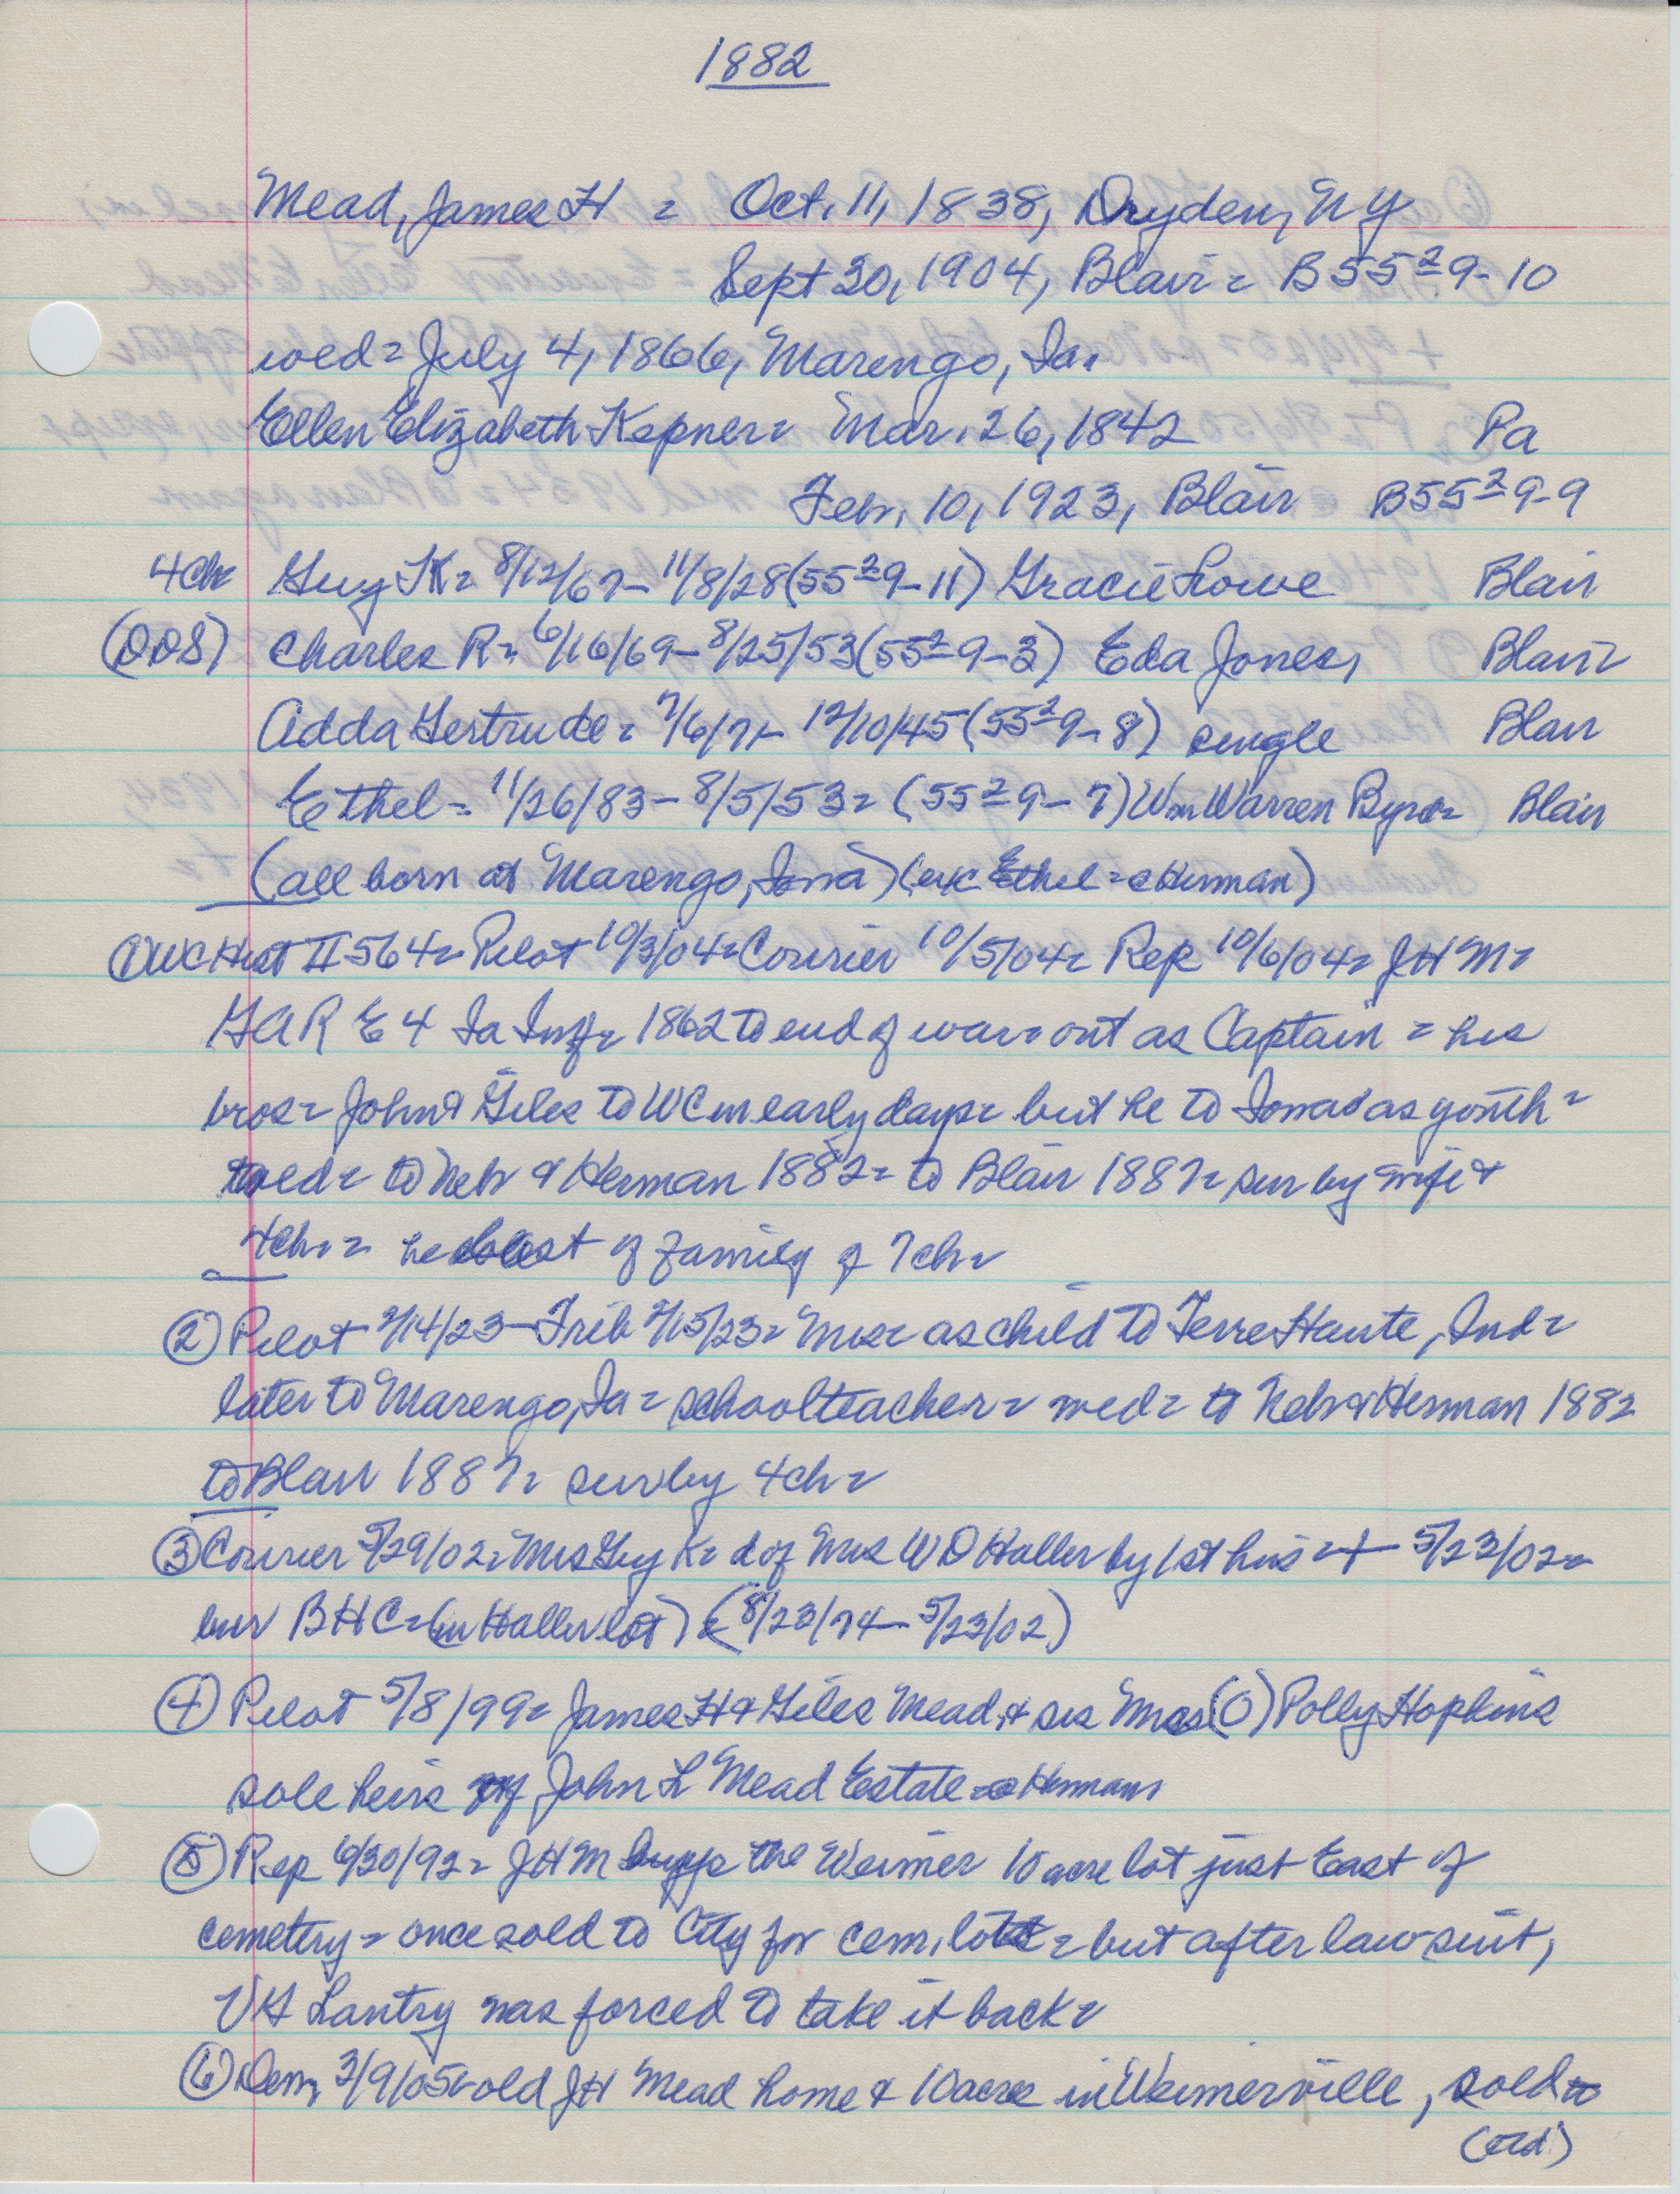 1882
Mead, James H = Oct. 11, 1838, Dryden, NY
Sept 30, 1904, Blair = B 55 2 9-10
wed = July 4, 1866, Marengo, Ia.
Ellen Elizabeth Kepner = Mar. 26, 1842 Pa
Feb. 10, 1923, Blair B 55 2 9-9
4ch Guy K = 8/12/67 - 11/8/28 (55 2 9-11) Gracie Lowe Blair
(DDS) Charles R = 6/16/69 - 8/25/53 (55 2 9-3) Eda Jones, Blair =
Adda Gertrude = 7/6/71 - 12/10/45 (55 2 9-8) single Blair
Ethel = 11/26/83 - 8/5/53 = (55 2 9-7) Wm Warren Byro = Blair
(all born at Marengo, Iowa) (exc Ethel = @ Herman)
① WC Hist II 564 = Pilot 10/3/04 = Courier 10/5/04 = Rep 10/6/04 = JHM =
GAR E 4 Ia Inf = 1862 to end of war = out as Captain = his
bros = John & Giles to WC in early days = but he to Iowa as youth =
wed = to Neb & Herman 1882 = to Blair 1887 = sur by wife &
4ch = he oldest of family of 7ch =
② Pilot 2/14/23 - Trib 2/15/23 = Mrs = as child to Terre Haute, Ind =
later to Marengo, Ia = schoolteacher = wed = to Neb & Herman 1882
to Blair 1887 = sur by 4ch =
③ Courier 5/29/02 = Mrs Guy K = d of Mrs W D Haller by 1st hus = + 5/23/02 =
bur BHC = (in Haller lot) = (8/23/74 - 5/23/02)
④ Pilot 5/8/99 = James H & Giles Mead, & sis Mrs (O) Polly Hopkins
sole heirs of John L Mead Estate = @ Herman
⑤ Rep 6/30/92 = JHM buys the Weimer 10 acre lot just East of
cemetery = once sold to City for cem. lots = but after law suit,
VG Lantry was forced to take it back =
⑥ Dem 3/9/05 = old JH Mead home & 10 acre in Weimerville, sold to
(ovr)